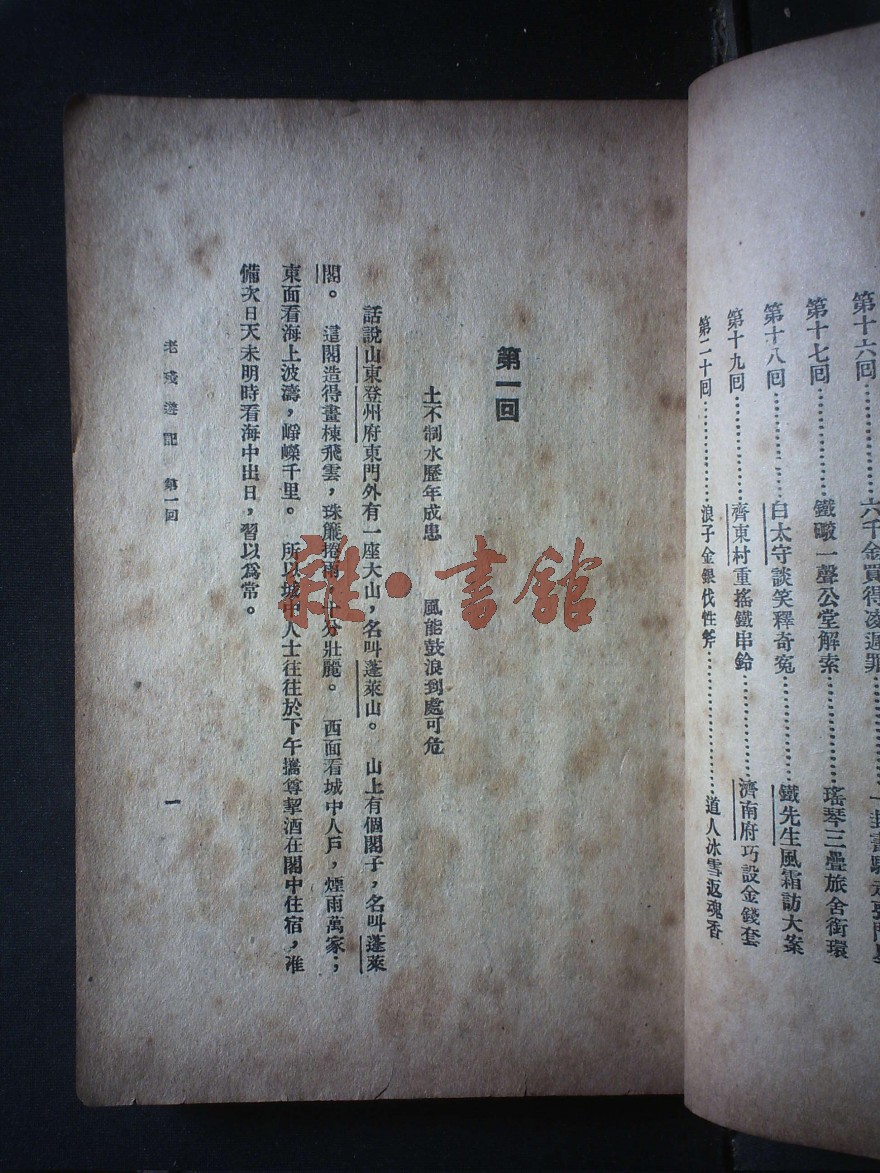 第十六回……六千金買得凌遲罪……一封書驅走喪門星
第十七回……鐵礮一聲公堂解索……瑤琴三疊旅舍銜環
第十八回……白太守談笑釋奇冤……鐵先生風霜訪大案
第十九回……齊東村重搖鐵串鈴……濟南府巧設金錢套
第二十回……浪子金銀伐性斧……道人冰雪返魂香
第一回
土不制水歷年成患　風能鼓浪到處可危
話說山東登州府東門外有一座大山，名叫蓬萊山。　山上有個閣子，名叫蓬萊
閣。　這閣造得畫棟飛雲，珠簾捲雨，十分壯麗。　西面看城中人戶，煙雨萬家；
東面看海上波濤，崢嶸千里。　所以城中人士往往於下午攜尊挈酒在閣中住宿，准
備次日天未明時看海中出日，習以爲常。
老殘遊記　第一回
一
雜·書館